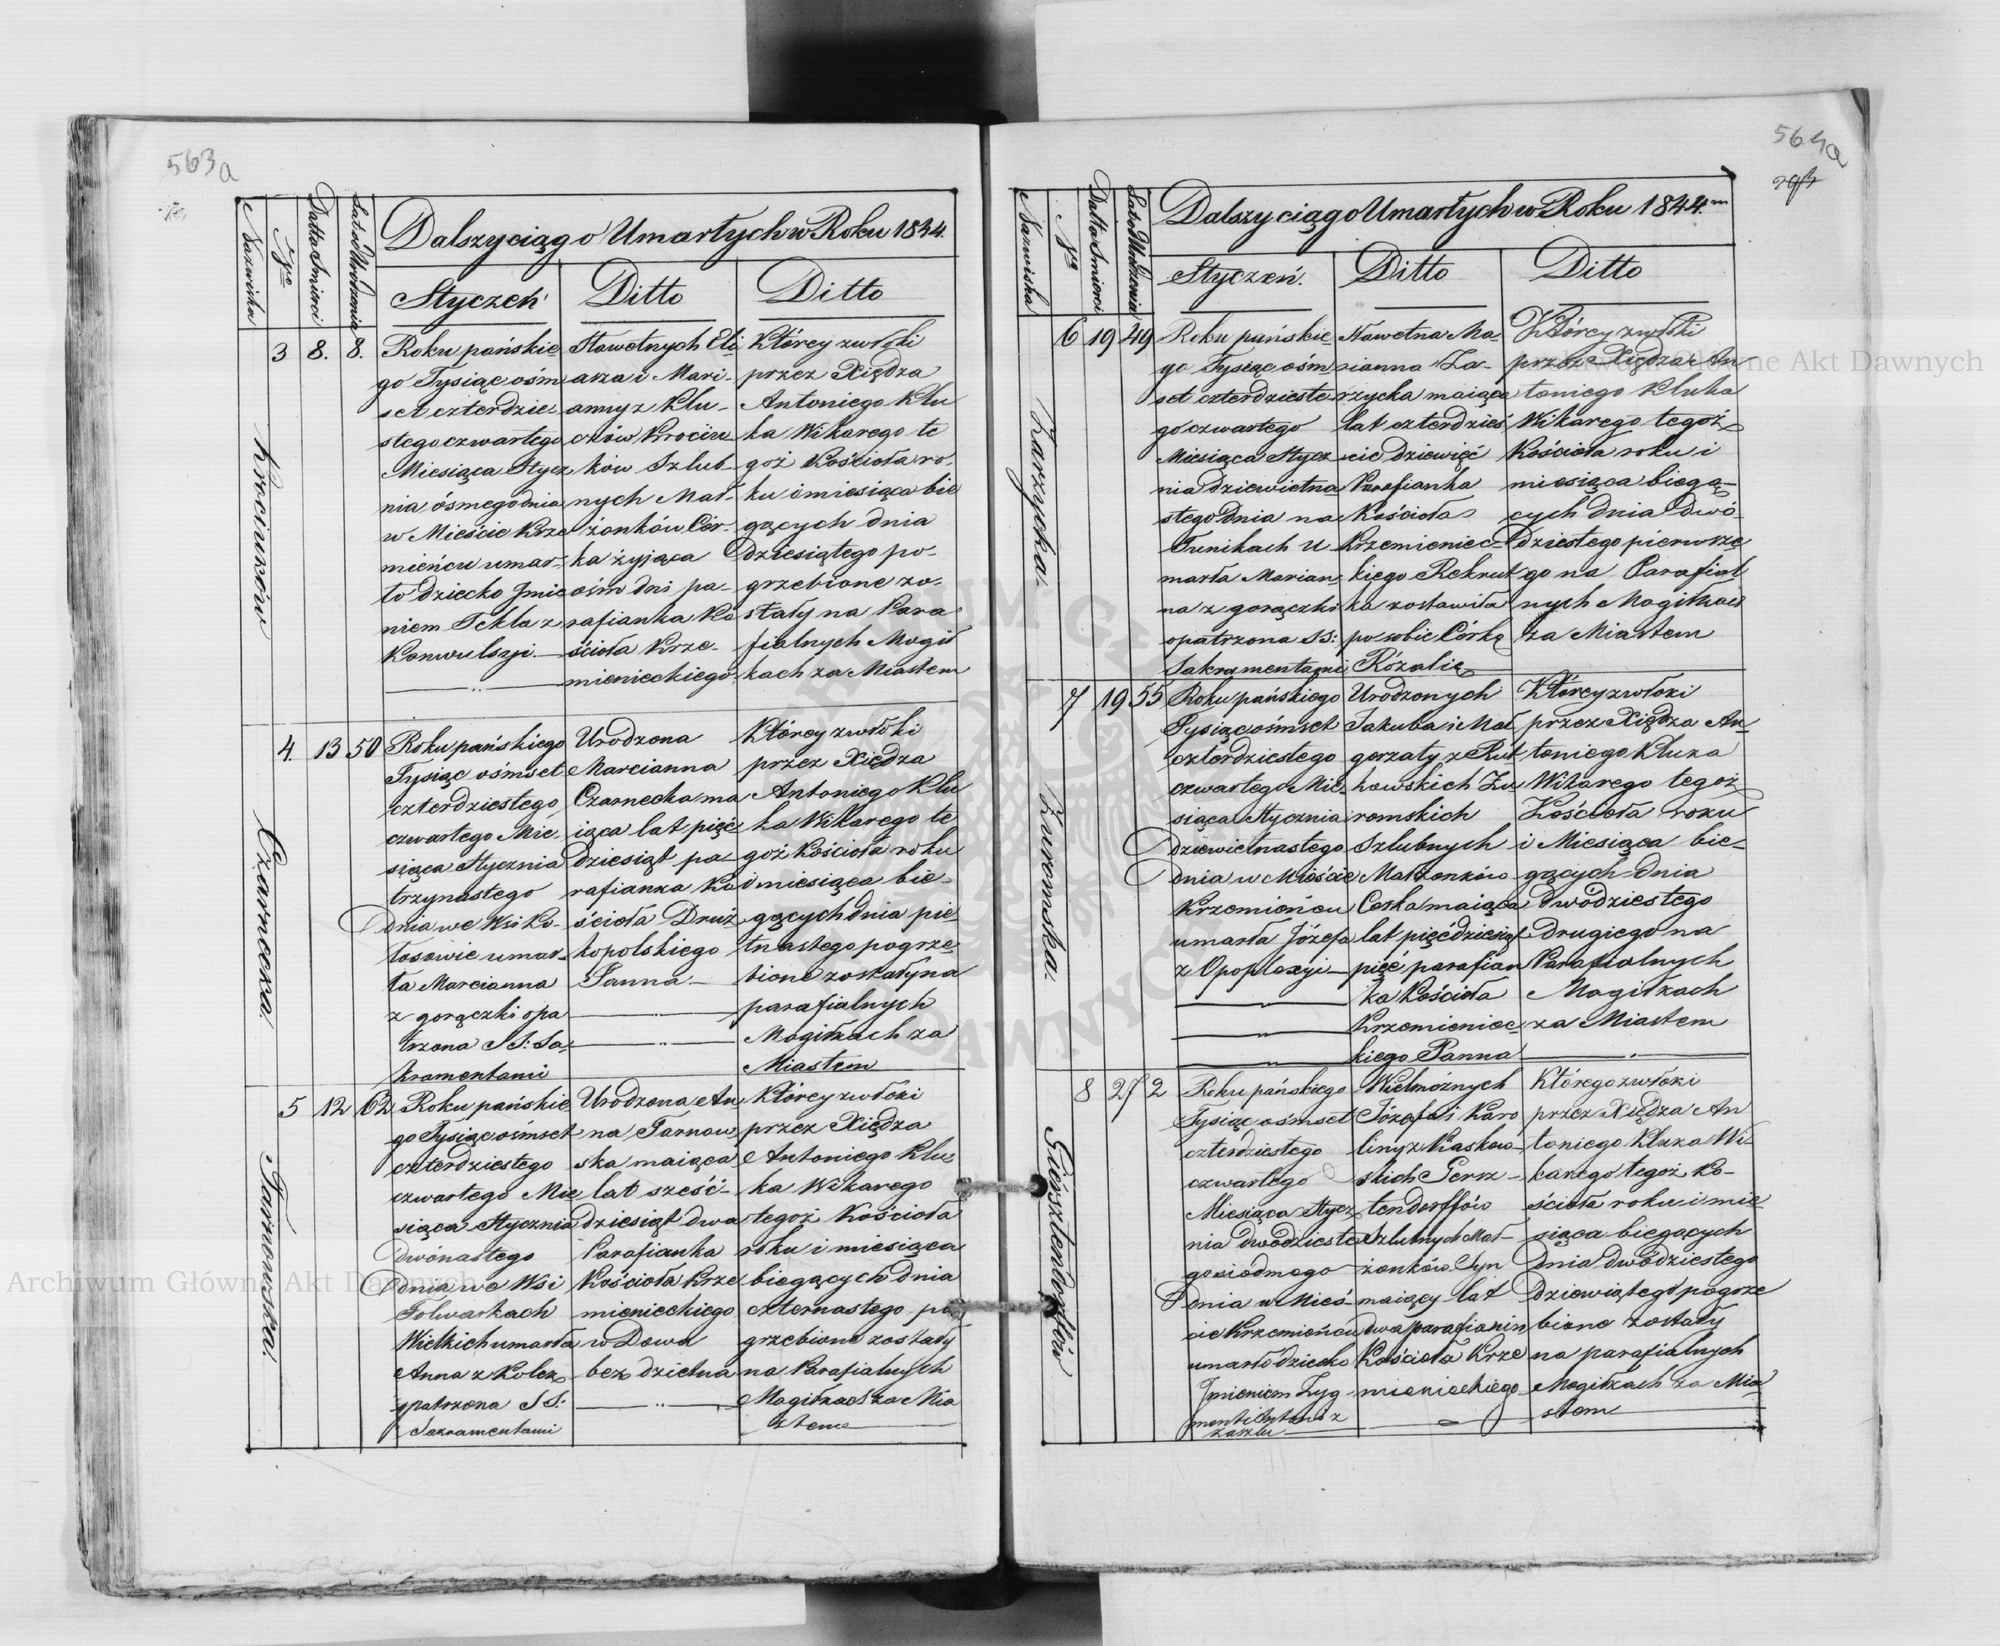 563a
Nazwiska
Nro
Datta Śmierci
Lata Urodzenia
Dalszy ciąg o Umarłych w Roku 1844.
Styczeń
Ditto
Ditto
Krociuków
3
8.
8.
Roku pańskie
go Tysiąc ośm
set czterdzie
stego czwartego
Miesiąca Stycz
nia ósmego dnia
w Mieście Krze
mieńcu umar-
ło dziecko Jmie
niem Tekla z
Konwulsyi.
Sławetnych Eli
asza i Mari-
anny z Klu-
ków Krociu
ków Szlub-
nych Mał-
żonków Cór-
ka żyjąca
ośm dni pa-
rafianka Ko
ścioła Krze-
mienieckiego
Którey zwłoki
przez Xiędza
Antoniego Klu
ka Wikarego te
goż Kościoła ro-
ku i miesiąca bie
gących dnia
dziesiątego po-
grzebione zo-
stały na Para
fialnych Mogił
kach za Miastem
Czarnecka.
4.
13
50
Roku pańskiego
Tysiąc ośmset
czterdziestego
czwartego Mie
siąca Stycznia
trzynastego
dnia we Wsi Ko-
łosowie umar-
ła Marcianna
z gorączki opa
trzona SS: Sa-
kramentami
Urodzona
Marcianna
Czarnecka ma
iąca lat pięć
dziesiąt pa
rafianka Ko
ścioła Druż
kopolskiego
Panna
Którey zwłoki
przez Xiędza
Antoniego Klu
ka Wikarego te
goż Kościoła roku
i miesiąca bie-
gących dnia pie
tnastego pogrze
bione zostały na
parafialnych
Mogiłkach za
Miastem
Tarnowska.
5
12
62
Roku pańskie
go Tysiąc ośmset
czterdziestego
czwartego Mie
siąca Stycznia
dwónastego
dnia we Wsi
Folwarkach
Wielkich umarła
Anna z Kolek
opatrzona SS:
Sakramentami
Urodzona An
na Tarnow
ska maiąca
lat sześć-
dziesiąt dwa
Parafianka
Kościoła Krze
mienieckiego
wDowa
bezdzietna
Którey zwłoki
przez Xiędza
Antoniego Klu
ka Wikarego
tegoż Kościoła
roku i miesiąca
biegących dnia
czternastego po
grzebione zostały
na Parafialnych
Mogiłkach za Mia
stem
564a
Nazwiska
No
Datta Śmierci
Lata Urodzenia
Dalszy ciąg o Umarłych w Roku 1844.m
Styczeń.
Ditto
Ditto
Zarzycka.
6
19
49
Roku pańskie
go Tysiąc ośm
set czterdzieste
go czwartego
Miesiąca Stycz
nia dziewietna
stego dnia na
Tunikach u
marła Marian-
na z gorączki
opatrzona SS:
Sakramentami
Sławetna Ma-
rianna Za-
rzycka maiąca
lat czterdzieś
cie dziewięć
Parafianka
Kościoła
Krzemieniec-
kiego Rekrut
ka zostawiła
po sobie Córkę
Rózalię
Którey zwłoki
przez Xiędza An
toniego Kluka
Wikarego tegoż
Kościoła roku i
miesiąca biegą-
cych dnia Dwó-
dziestego pierwsze
go na Parafial
nych Mogiłkach
za Miastem
Żuromska.
7
19
55
Roku pańskiego
Tysiąc ośmset
czterdziestego
czwartego Mie
siąca Stycznia
dziewietnastego
dnia w Mieście
Krzemieńcu
umarła Józefa
z Opoplexyi
Urodzonych
Jakuba i Mał
gorzaty z Rut
kowskich Żu
romskich
Szlubnych
Małżonków
Corka maiąca
lat pięćdziesiąt
pięć parafian
ka Kościoła
Krzemieniec
kiego Panna
Którey zwłoki
przez Xiędza An-
toniego Kluka
Wikarego tegoż
Kościoła roku
i Miesiąca bie-
gących dnia
Dwódziestego
Drugiego na
Parafialnych
Mogiłkach
za Miastem
Giersztendorffów
8
27
2
Roku pańskiego
Tysiąc ośmset
czterdziestego
czwartego
Miesiąca Stycz
nia dwódzieste
go siódmego
dnia w Mieś-
cie Krzemieńcu
umarło dziecko
Jmieniem Zyg-
Wielmożnych
Józefa i Karo
liny z Kaskow-
skich Gersz-
tendorffów
Szlubnych Mał-
żonków Syn
maiący lat
dwa parafianin
Kościoła Krze
mienieckiego
Którego zwłoki
przez Xiędza An
toniego Kluka Wi-
karego tegoż Ko-
ścioła roku i mie-
siąca biegących
dnia dwódziestego
dziewiątego pogrze
bione zostały
na parafialnych
Mogiłkach za Mia
stem
Archiwum Główne Akt Dawnych
Archiwum Główne Akt Dawnych